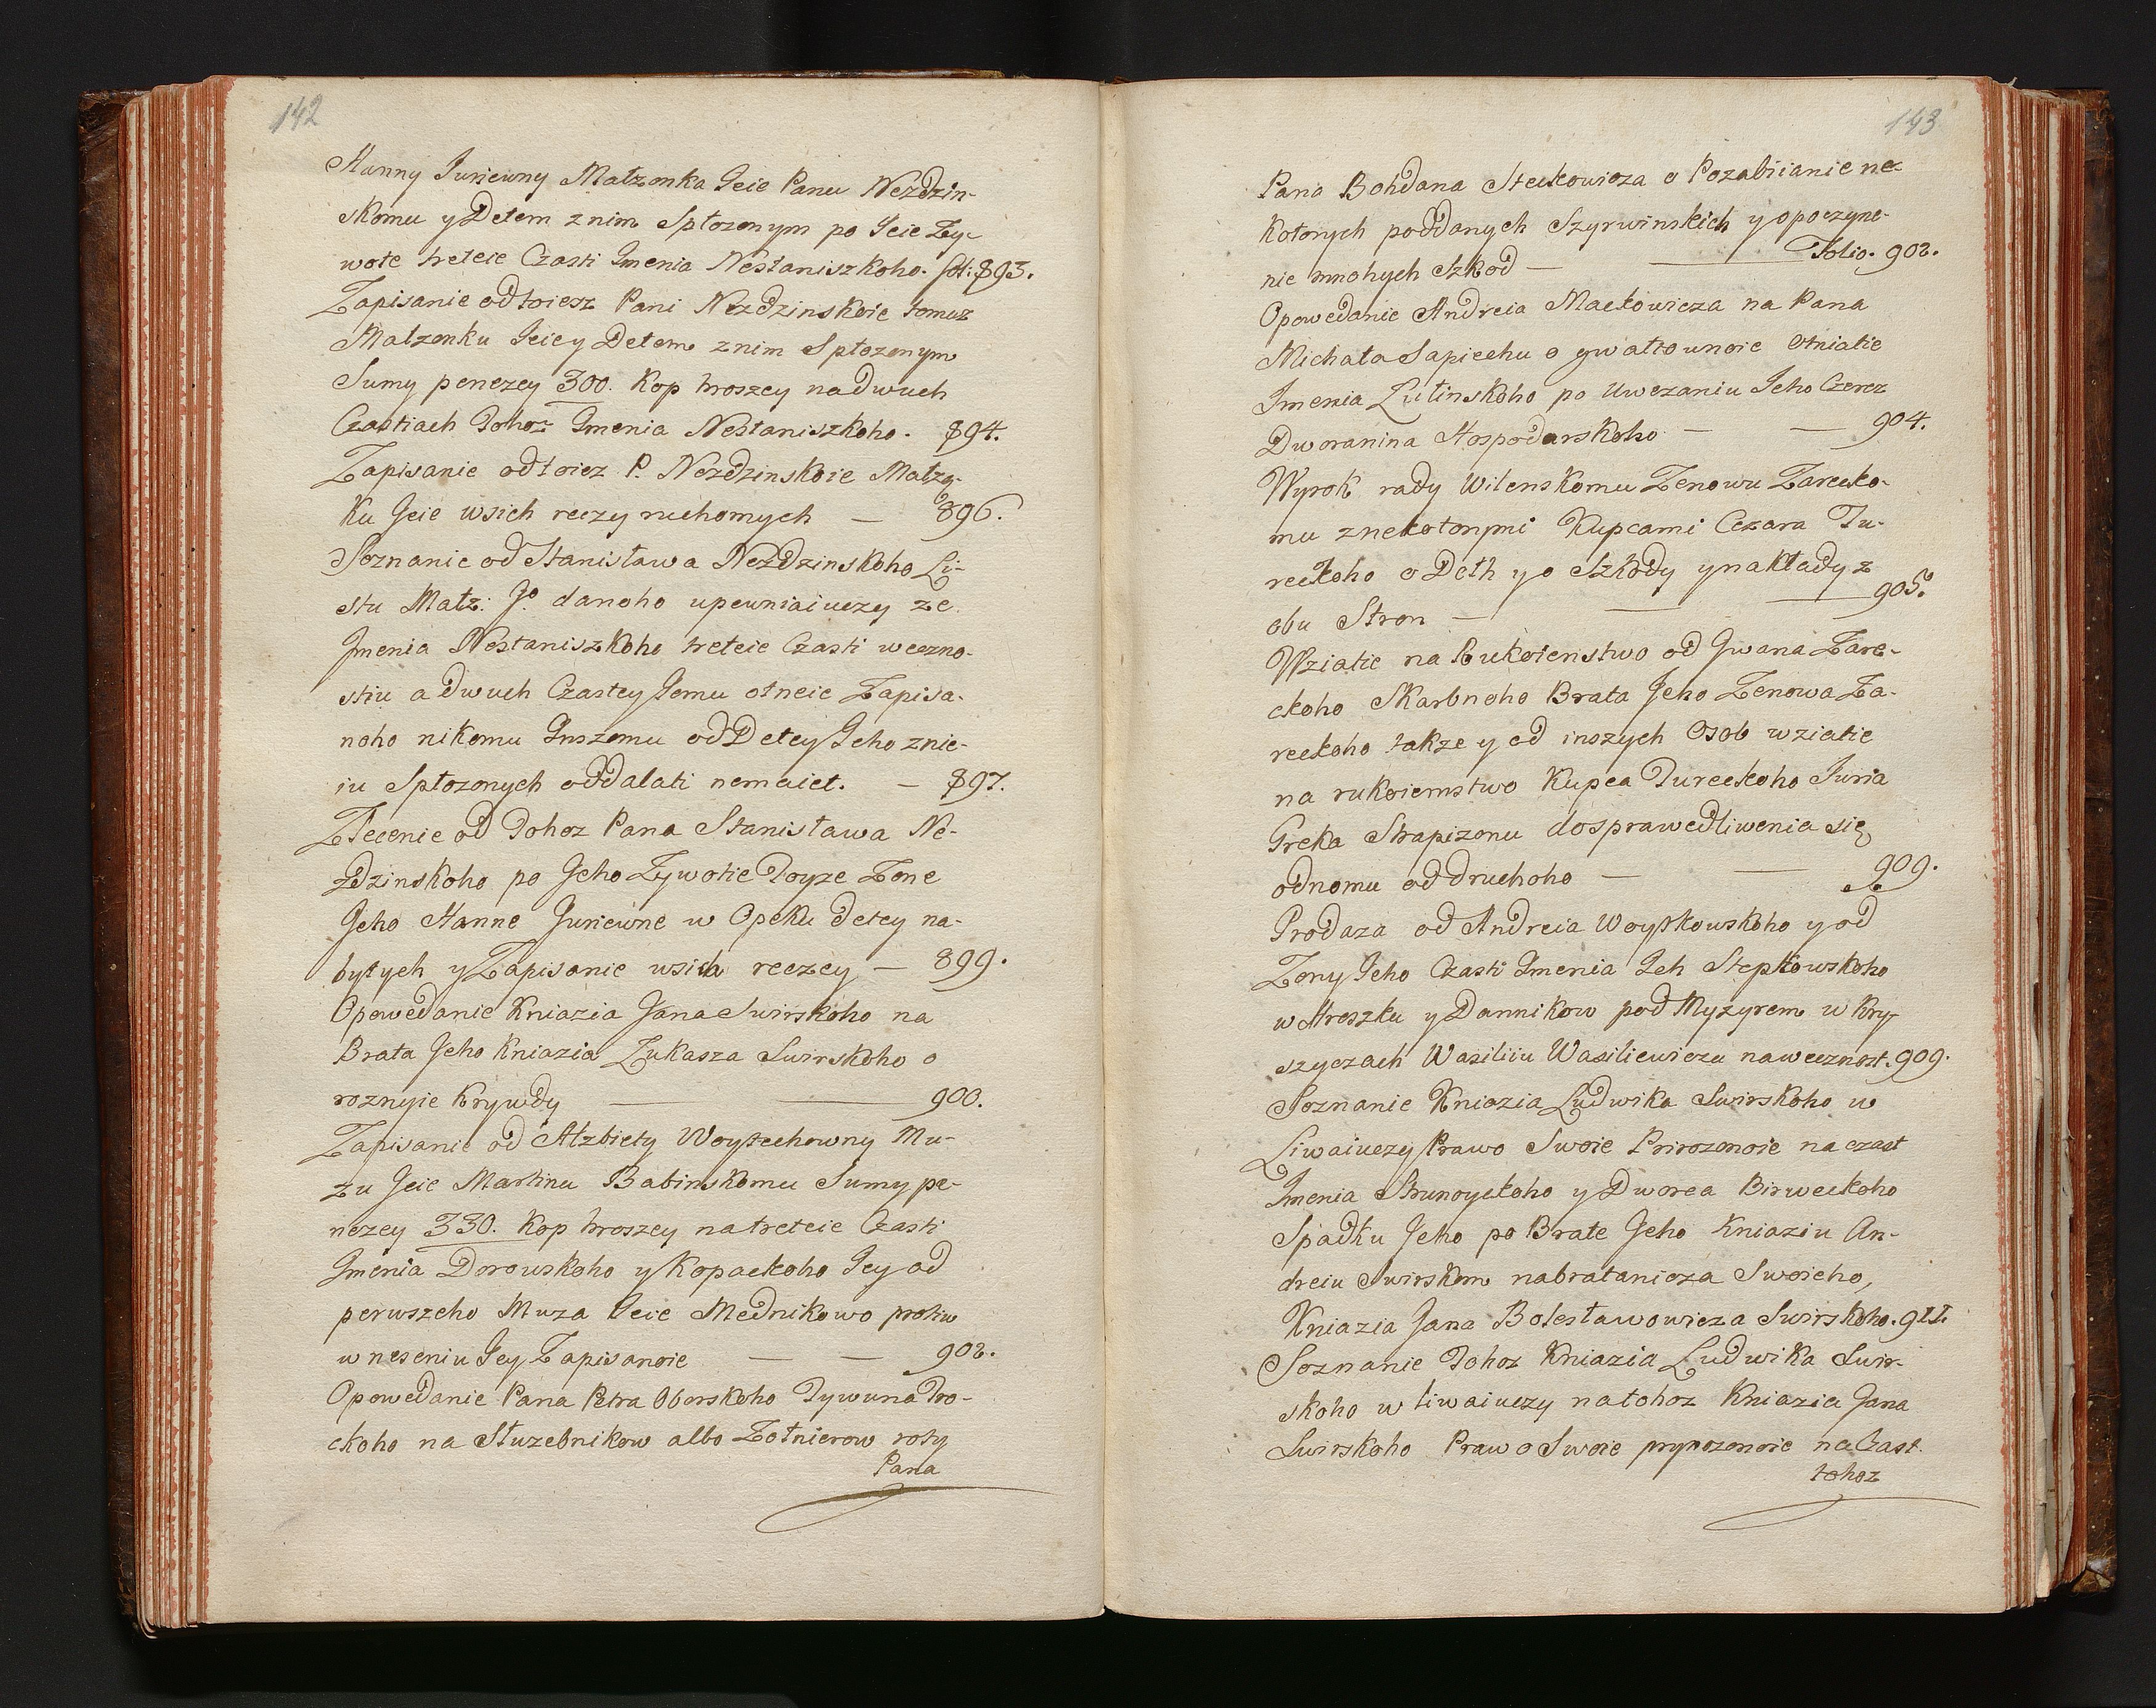 142
Hanny Juriewny Małzonka Jeie Panu Nezdzin-
skomu y Detem z nim Spłozonym po Jeie Zy-
wote treteie Czasti Imenia Nestaniszkoho. fol: 893.
Zapisanie od toiesz Pani Nezdzinskoie tomuz
Małzonku Jeie y Detem z nim Spłozonym
Sumy penezey 300. Kop hroszey na dwuch
Czastiach Tohoz Imenia Nestaniszkoho. 894.
Zapisanie od toiez P. Nezdzinskoie Małzo-
ku Jeie wsich reczy ruchomych — 896.
Soznanie od Stanisława Nezdzinskoho Li-
stu Małz: Jo danoho upewniaiuczy ze
Imenia Nestaniszkoho treteie Czasti weczno-
stiu a dwuch Czastey Jemu ot neie Zapisa-
noho nikomu Inszomu od Detey Jeho z nie-
iu Spłozonych oddalati nemaiet. — 897.
Zlecenie od Tohoz Pana Stanisława Ne-
zdzinskoho po Jeho Zywotie Toyze Zone
Jeho Hanne Juriewne w Opeku detey na-
bytych y Zapisanie wsich reczey — 899.
Opowedanie Kniazia Jana Swirskoho na
Brata Jeho Kniazia Łukasza Swirskoho o
roznyie Krywdy — — 900.
Zapisanie od Alzbiety Woytechowny Mu-
zu Jeie Martinu Babinskomu Sumy pe-
nezey 330. Kop hroszey na treteie Czasti
Imenia Dorowskoho y Kopackoho Jey od
perwszeho Muza Jeie Mednikowo protiw
wneseniu Jey Zapisanoie — — 902.
Opowedanie Pana Petra Oborskoho Tywuna Tro-
ckoho na Słuzebnikow albo Zołnierow roty
Pana
143
Pana Bohdana Steckowicza o Pozabiianie ne-
kotorych poddanych Szyrwinskich y opoczyne-
nie mnohych Szkod — — Folio. 902.
Opowedanie Andreia Mackowicza na Pana
Michała Sapiechu o gwałtownoie Otniatie
Imenia Lutinskoho po Uwezaniu Jeho Czerez
Dworanina Hospodarskoho — — 904.
Wyrok rady Wilenskomu Zenowu Zarecko-
mu z nekotorymi Kupcami Cezara Tu-
reckoho o Deth y o Szkody y nakłady z
obu Stron — — — 905.
Wziatie na Rukoienstwo od Iwana Zare-
ckoho Skarbnoho Brata Jeho Zenowa Za-
reckoho takze y od inszych Osob wziatie
na rukoiemstwo Kupca Tureckoho Juria
Greka Strapizonu do sprawedliwenia się
odnomu od druhoho — — 909.
Prodaza od Andreia Woytkowskoho y od
Zony Jeho Czasti Imenia Jeh Stepkowskoho
w Hroszku y Dannikow pod Myzyrem w Kry-
szyczach Wasiliiu Wasiliewiczu na wecznost. 909.
Soznanie Kniazia Ludwika Swirskoho w
Liwaiuczy Prawo Swoie Prirozonoie na czast
Imenia Strunoyckoho y Dworca Birweckoho
Spadku Jeho po Brate Jeho Kniaziu An-
dreiu Swirskom na bratanicza Swoieho,
Kniazia Jana Bolesławowicza Swirskoho. 911.
Soznanie Tohoz Kniazia Ludwika Swir-
skoho w liwaiuczy na tohoz Kniazia Jana
Swirskoho Prawo Swoie pryrozonoie na Czast
tohoz